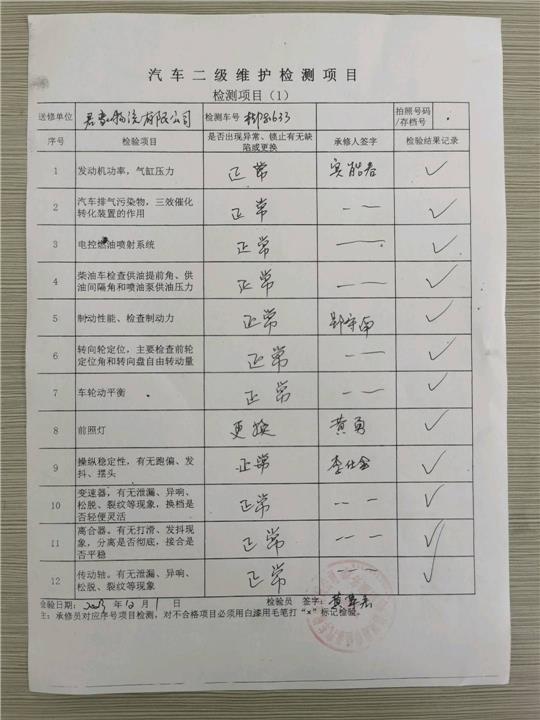 汽车二级维护检测项目
检测项目（1）
送修单位 物流有限公司 检测车号 拍照号码/存档号
序号 检验项目 是否出现异常、锁止有无缺陷或更换 承修人签字 检验结果记录
1 发动机功率，气缸压力 正常 ✓
2 汽车排气污染物，三效催化转化装置的作用 正常 — — ✓
3 电控燃油喷射系统 正常 — ✓
4 柴油车检查供油提前角、供油间隔角和喷油泵供油压力 正常 — — ✓
5 制动性能、检查制动力 正常 ✓
6 转向轮定位，主要检查前轮定位角和转向盘自由转动量 正常 — — ✓
7 车轮动平衡 正常 — — ✓
8 前照灯 更换 黄勇 ✓
9 操纵稳定性，有无跑偏、发抖、摆头 正常 李仕金 ✓
10 变速器，有无泄漏、异响、松脱、裂纹等现象，换档是否轻便灵活 正常 — — ✓
11 离合器。有无打滑、发抖现象，分离是否彻底，接合是否平稳 正常 — — ✓
12 传动轴。有无泄漏、异响、松脱、裂纹等现象 正常 — — ✓
检验日期： 年 12 月 1 日 检验员 签字：
注：承修员对应序号项目检测，对不合格项目必须用白漆用毛笔打“×”标记检验。